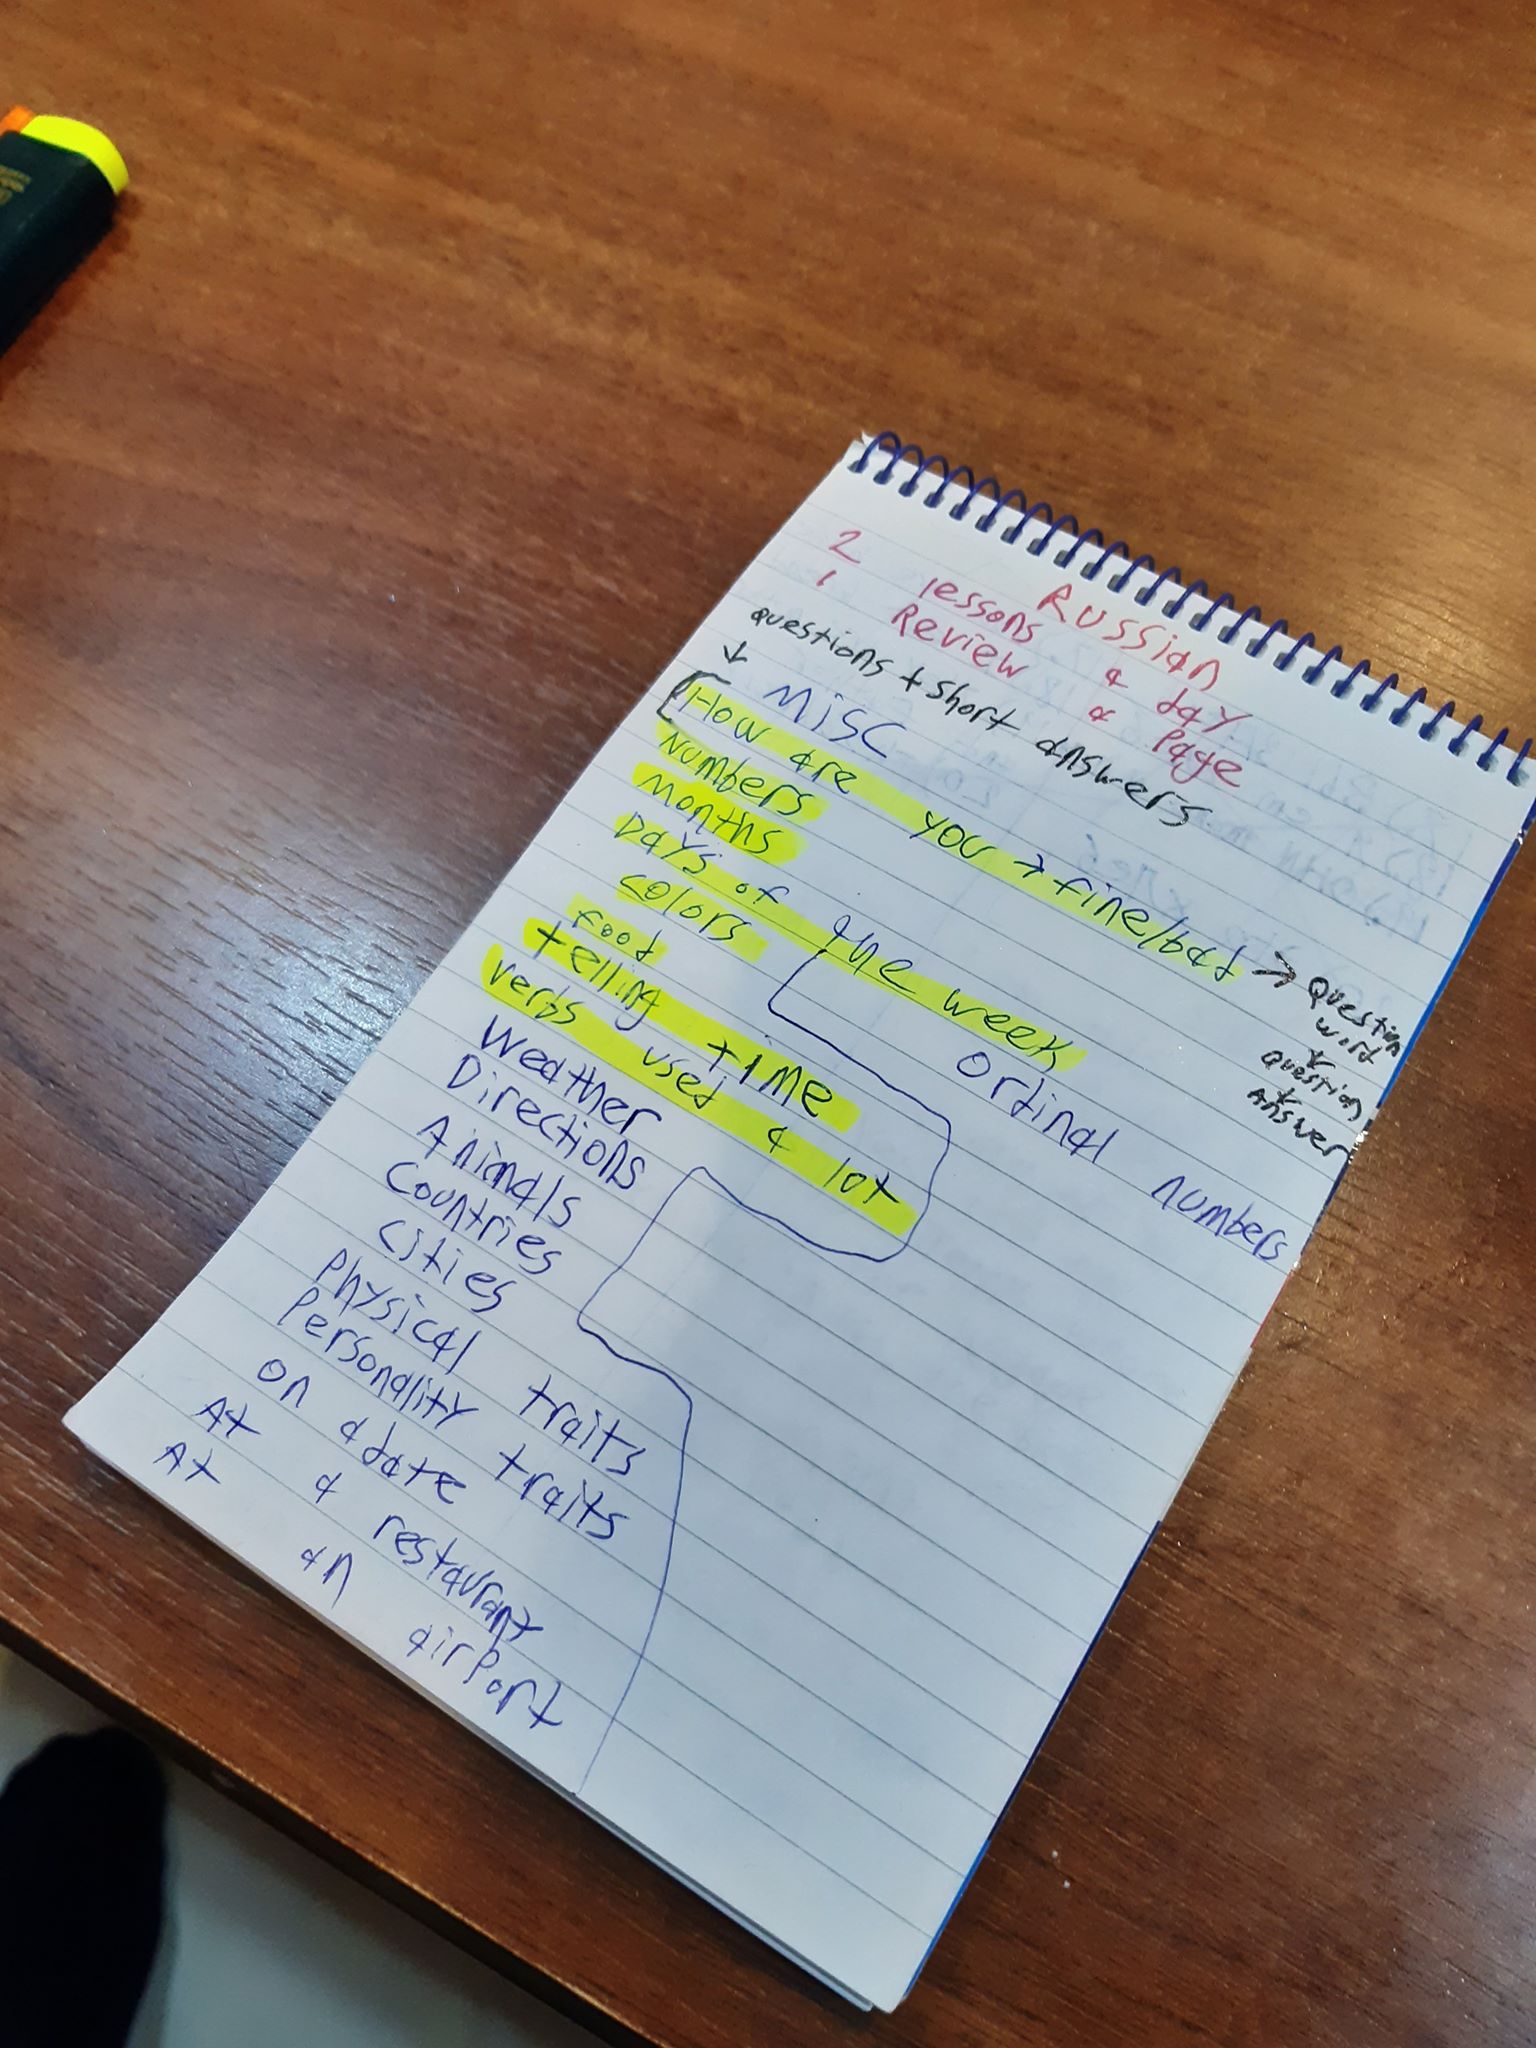 RUSSian
2 lessons a day
1 Review a Page
questions + short answers
↓
MiSC
How are you → fine/bad → question word
↓
question
↓
Answer
Numbers
Months
Days of the week
colors
Food
telling time
verbs used a lot
ordinal numbers
Weather
Directions
Animals
Countries
Cities
Physical traits
Personality traits
on a date
At a restaurant
At an airport